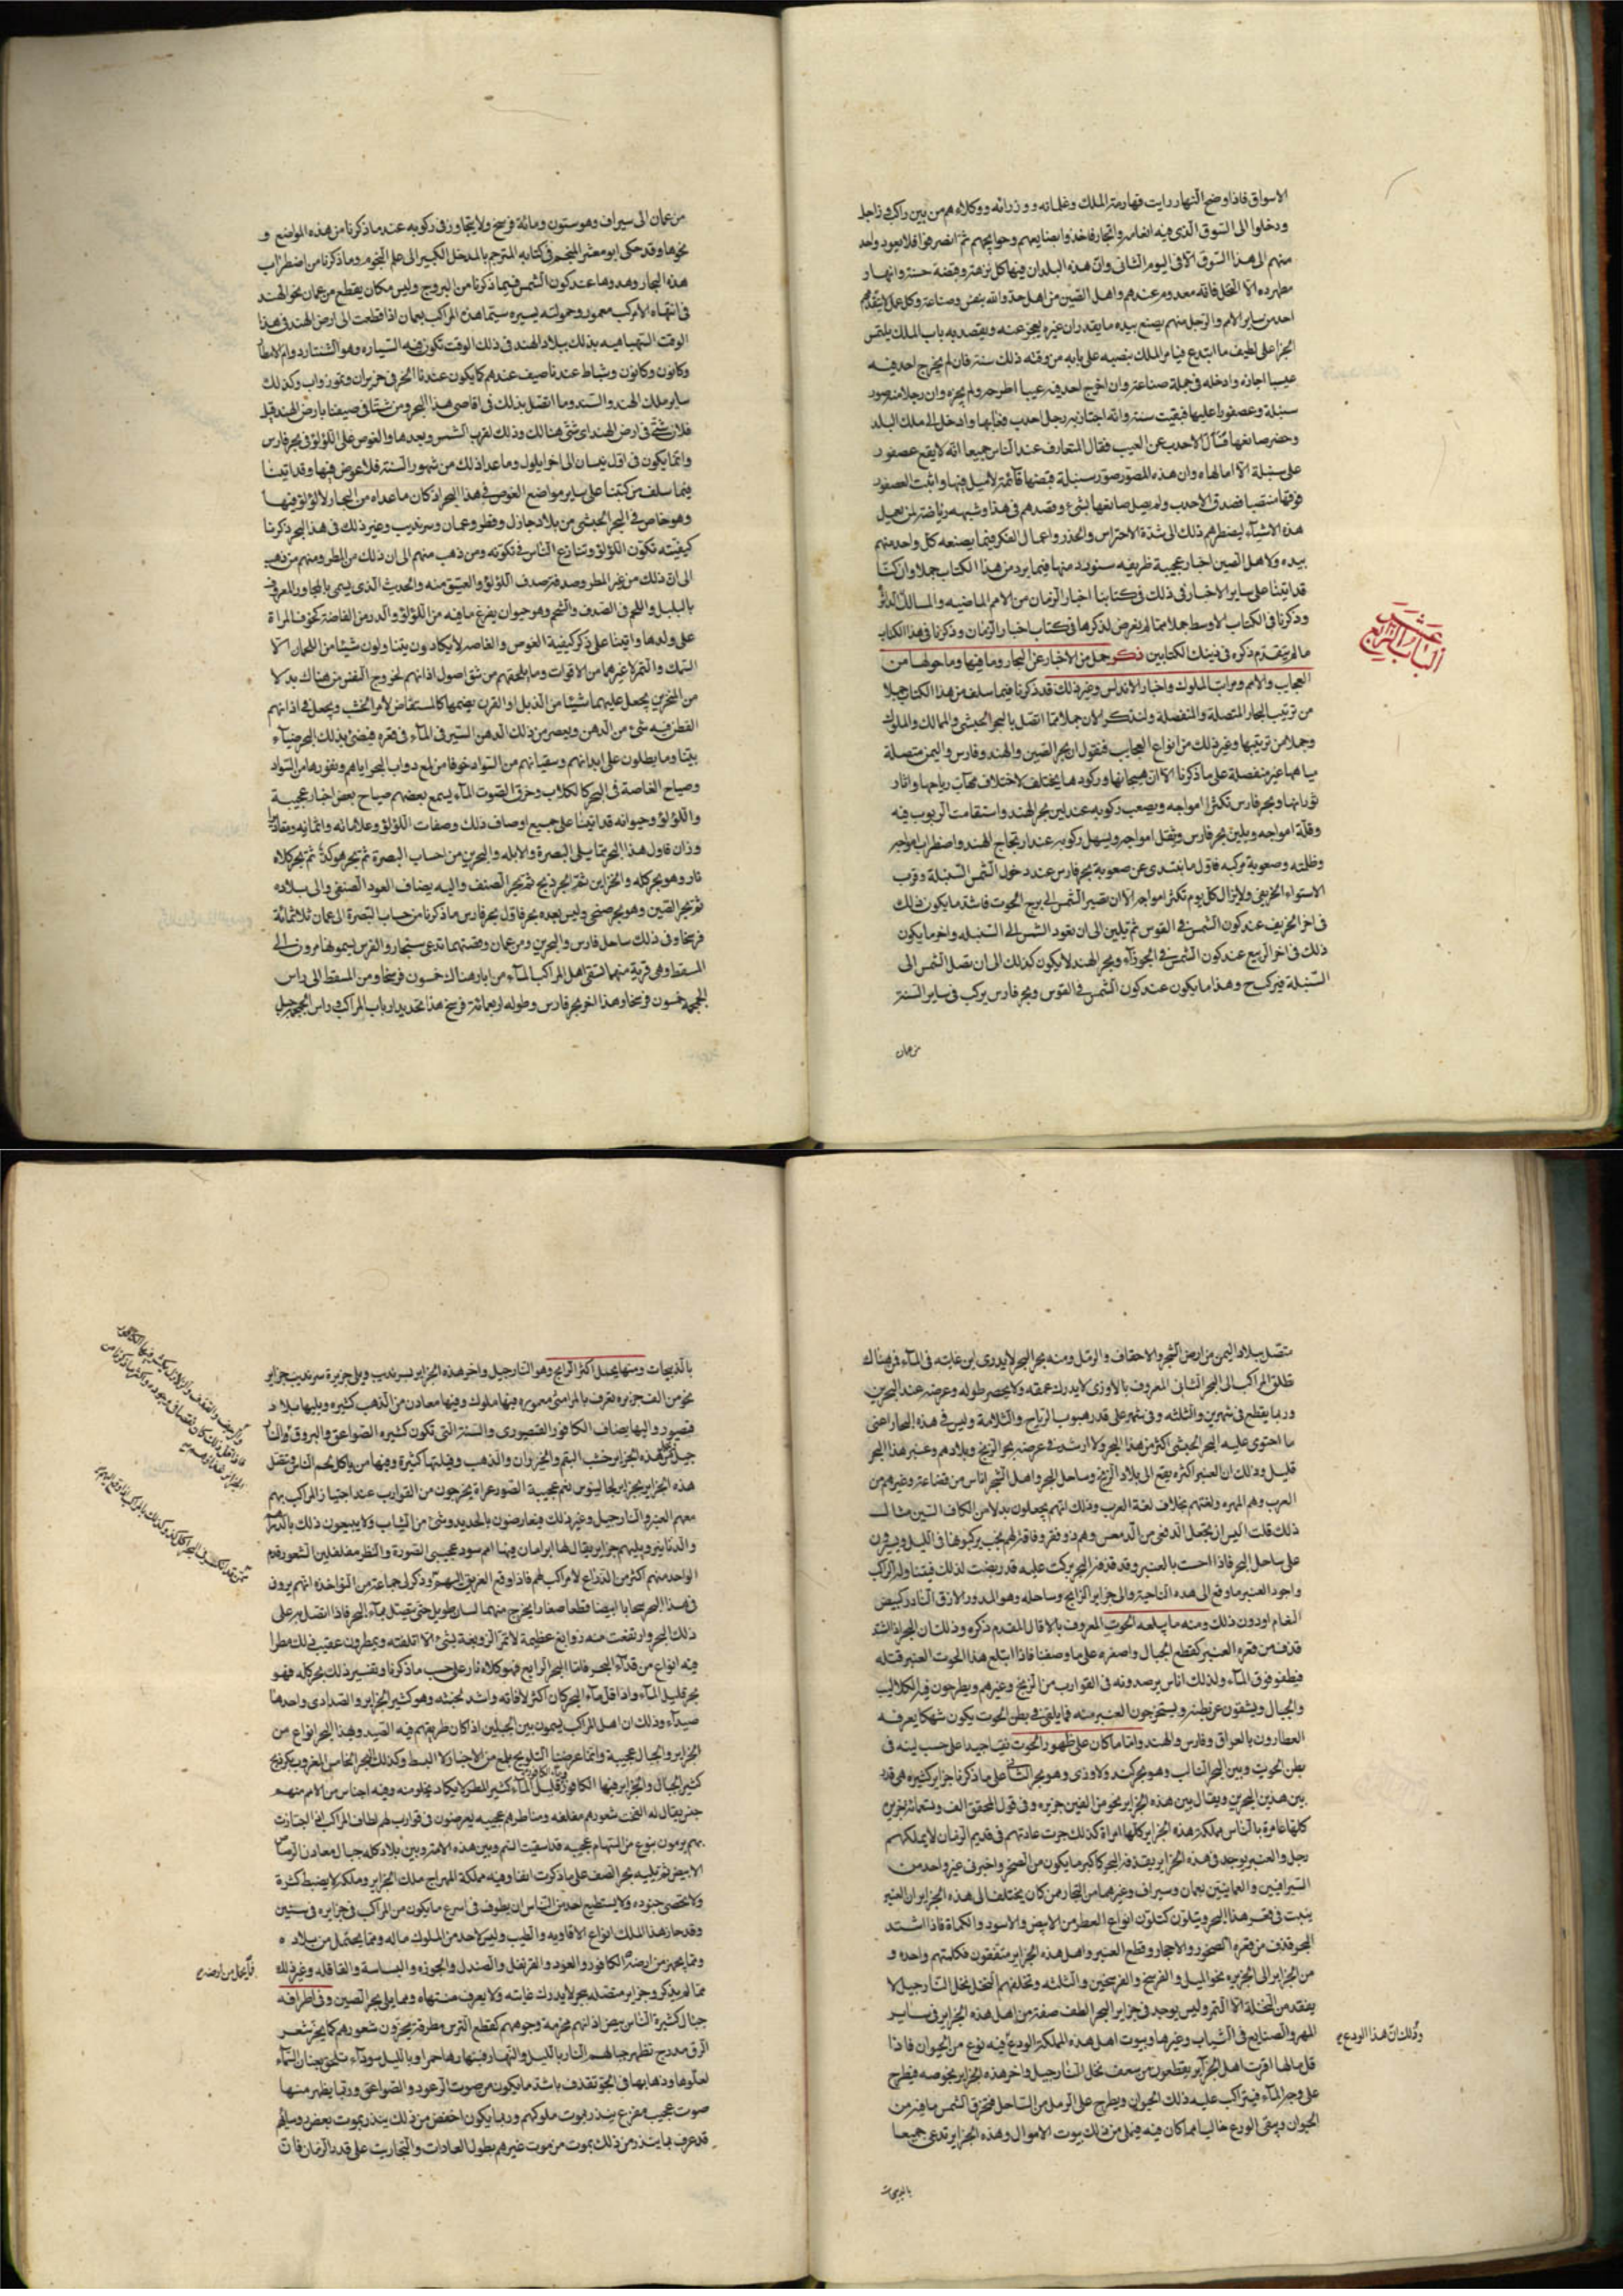 الاسواق فاذا وضح النهار رايت قهارمة الملك وغلمانه ووزرائه ووكلاءهم من بين راكب وراجل
ودخلوا الى السوق الذى فيه العامه والتجار فاخذوا بضايعهم وحوايجهم ثم انصرفوا فلا يعود واحد
منهم الى هذا السوق الا فى اليوم الثانى وان هذه البلدان فيها كل نزهة وغيضة حسنة وانهار
مطرده الا النخل فانه معدوم عندهم واهل الصين من احذق خلق الله بنقش وصناعة وكل عمل لا يتقدمهم
احد من ساير الامم والرجل منهم يصنع بيده ما يقدر ان غيره يعجز عنه ويقصد به باب الملك يلتمس
الجزا على لطيف ما ابتدع فيامر الملك بنصبه على بابه من وقته ذلك سنة فان لم يخرج احد فيه
عيبا اجازه وادخله فى جملة صناعه وان اخرج احد فيه عيبا اطرحه ولم يجزه وان رجلا منهم صور
سنبلة وعصفورا عليها فبقيت سنة وانه اجتاز بها رجل احدب فعابها وادخل الى ملك البلد
وحضر صانعها فسأل الاحدب عن العيب فقال المتعارف عند الناس جميعا انه لا يقع عصفور
على سنبلة الا امالها وان هذه المصور صور سنبلة فنصبها قائمة لا ميل فيها واثبت العصفور
فوقها منتصبا فصدق الاحدب ولم يصل صانعها بشئ وقصدهم فى هذا وشبهه رياضة لمن يعمل
هذه الاشياء ليضطرهم ذلك الى شدة الاحتراس والحذر واعمال الفكر فيما يصنعه كل واحد منهم
بيده ولاهل الصين اخبار عجيبة ظريفه سنورد منها فيما يرد من هذا الكتاب جملا وان كنا
قد اتينا على ساير الاخبار فى ذلك فى كتابنا اخبار الزمان من الامم الماضيه والممالك الداثره
وذكرنا فى الكتاب الاوسط جملا مما لم يعرض لذكرها فى كتاب اخبار الزمان وذكرنا فى هذا الكتاب
ما لم يتقدم ذكره فى ذينك الكتابين ذكر جمل من الاخبار عن البحار وما فيها وما حولها من
العجايب والامم ومراتب الملوك واخبار الاندلس وغير ذلك قد ذكرنا فيما سلف من هذا الكتاب جملا
من ترتيب البحار المتصلة والمنفصلة ولنذكر الان جملا مما اتصل بالبحر الحبشى والممالك والملوك
وجملا من ترتيبها وغير ذلك من انواع العجايب فنقول ان بحر الصين والهند وفارس واليمن متصلة
مياهها غير منفصلة على ما ذكرنا الا ان هيجانها وركودها يختلف لاختلاف مهاب رياحها واثار
ثورانها وبحر فارس تكثر امواجه ويصعب ركوبه عند لين بحر الهند واستقامت الركوب فيه
وقلة امواجه ويلين بحر فارس وتقل امواجه ويسهل ركوبه عند ارتجاج الهند واضطراب امواجه
وظلمته وصعوبة مركبه فاول ما يبتدى من صعوبة بحر فارس عند دخول الشمس السنبلة وقرب
الاستواء الخريفى ولا يزال كل يوم تكثر امواجه الا ان تصير الشمس الى برج الحوت فاشد ما يكون ذلك
فى اخر الخريف عند كون الشمس فى القوس ثم تلين الى ان تعود الشمس الى السنبله واخر ما يكون
ذلك فى اخر الربيع عند كون الشمس فى الجوزاء وبحر الهند لا يكون كذلك الى ان تصل الشمس الى
السنبلة فيركب ح وهذا ما يكون عند كون الشمس فى القوس وبحر فارس يركب فى ساير السنة
من عمان
الباب الرابع عشر
من عمان الى سيراف وهو ستون ومائة فرسخ ولا يتجاوز فى ركوبه عند ما ذكرنا من هذه المواضع و
نحوها وقد حكى ابو معشر المنجم فى كتابه المترجم بالمدخل الكبير الى علم النجوم وما ذكرنا من اضطراب
هذه البحار وهدوها عند كون الشمس فيما ذكرنا من البروج وليس مكان يقطع من عمان نحو الهند
فى انتهاه الا مركب معمور وحمولته يسيره سيما هذه المراكب بعمان اذا قطعت الى ارض الهند فى هذا
الوقت التيرماهيه وذلك ببلاد الهند فى ذلك الوقت تكون فيه السياره وهو الشتا ودوام الامطار
وكانون وكانون وشباط عندنا صيف عندهم كما يكون عندنا الحر فى حزيران وتموز واب وكذلك
ساير ملك الهند والسند وما اتصل بذلك فى اقاصى هذا البحر ومن شتا فى صيفنا بارض الهند قيل
فلان شتى فى ارض الهند اى شتى هنالك وذلك لقرب الشمس وبعدها والغوص على اللؤلؤ فى بحر فارس
وانما يكون فى اول نيسان الى اخر ايلول وما عدا ذلك من شهور السنة فلا غوص فيها وقد اتينا
فيما سلف من كتبنا على ساير مواضع الغوص فى هذا البحر اذ كان ما عداه من البحار لا لؤلؤ فيها
وهو خاص فى البحر الحبشى من بلاد خارك وقطر وعمان وسرنديب وغير ذلك فى هذا البحر ذكرنا
كيفيته تكون اللؤلؤ وتنازع الناس فى تكونه ومن ذهب منهم الى ان ذلك من المطر ومنهم من ذهب
الى ان ذلك من غير المطر وصفة صدف اللؤلؤ والعتيق منه والحديث الذى يسمى بالمحار والمعروف
بالبلبل واللحم فى الصدف والشحم وهو حيوان يفزع ما فيه من اللؤلؤ والدر من الغاصة كخوف المراة
على ولدها واتينا على ذكر كيفية الغوص والغاصه لا يكادون يتناولون شيئا من اللحمان الا
السمك والتمر لا غيرهما من الاقوات وما يلحقهم من شق اصول اذانهم لخروج النفس من هناك بدلا
من المنخرين يجعل عليهما شيئا من الذبل او القرن يضمهما كالمستقاض لا من الخشب ويجعل فى اذانهم
القطن فيه شئ من الدهن ويعصر من ذلك الدهن اليسير فى الماء فى قعره فيضئ بذلك البحر ضياء
بينا وما يطلون على ابدانهم وسيقانهم من السواد خوفا من بلع دواب البحر اياهم ونفورها من السواد
وصياح الغاصة فى البحر كالكلاب وخرق الصوت الماء يسمع بعضهم صياح بعض اخبار عجيبة
واللؤلؤ وحيوانه قد اتينا على جميع اوصاف ذلك وصفات اللؤلؤ وعلاماته واثمانه ومقادير
وزان فاول هذا البحر مما يلى البصرة والابله والبحرين من احساب البصرة ثم بحر هركند ثم بحر كلاه
فار وهو بحر كله والجزاير ثم بحر كردنج ثم بحر الصنف واليه يضاف العود الصنفى والى بلاده
ثم بحر الصين وهو بحر صنجى وليس بعده بحر فاول بحر فارس ما ذكرنا من حساب البصرة الى عمان ثلاثمائة
فرسخا وفى ذلك ساحل فارس والبحرين ومن عمان وقصبتها تدعى سنجار والفرس يسمونها مزون الى
المسقط وهى قرية منها يستقى اهل المراكب الماء من ابار هناك خمسون فرسخا ومن المسقط الى راس
الجمجمة خمسون فرسخا وهذا اخر بحر فارس وطوله اربعمائة فرسخ هذا تحديد ارباب المراكب وراس الجمجمة جبل
تتصل ببلاد اليمن من ارض الشحر والاحقاف والرمل ومنه بحر البحر لا يدرى اين غايته فى الماء فمن هناك
تطلق المراكب الى البحر الثانى المعروف بالاورى لا يدرك عمقه ولا يحصر طوله وعرضه عند البحريين
وربما يقطع فى شهرين والثلثه وفى شهر على قدر هبوب الرياح والسلامة وليس فى هذه البحار اعنى
ما احتوى عليه البحر الحبشى اكثر من هذا البحر ولا اشد وفى عرضه بحر الزنج وبلادهم وعنبر هذا البحر
قليل وذلك ان العنبر اكثره يقع الى بلاد الزنج وساحل البحر واهل الشحر اناس من قضاعة وغيرهم من
العرب وهم المهره ولغتهم بخلاف لغة العرب وذلك انهم يجعلون بدلا من الكاف الشين مثال
ذلك قلت اليس ان يجعل الذى معى فى الذى معس وهم ذو فقر وفاقة لهم نجب يركبونها فى الليل ويسيرون
على ساحل البحر فاذا احست بالعنبر وقد قذفه البحر بركت عليه قد ريضت لذلك فيتناوله الراكب
واجود العنبر ما وقع الى هذه الناحية والى جزاير الزابج وساحله وهو المدور الازرق النادر كبيض
النعام او دون ذلك ومنه ما يبلعه الحوت المعروف بالاقال المقدم ذكره وذلك ان البحر اذا اشتد
قذف من قعره العنبر كقطع الجبال واصغره على ما وصفنا فاذا ابتلع هذا الحوت العنبر قتله
فيطفو فوق الماء ولذلك اناس يرصدونه فى القوارب من الزنج وغيرهم ويطرحون فيه الكلاليب
والحبال ويشقون عن بطنه ويستخرجون العنبر منه فما يلقى فى بطن الحوت يكون سهكا يعرفه
العطارون بالعراق وفارس والهند واما ما كان على ظهور الحوت نقيا جيدا على حسب لبثه فى
بطن الحوت وبين البحر الثالث وهو بحر كند ولاوذى وهو بحر الثانى على ما ذكرنا جزاير كثيره هى قدر
بين هذين البحرين ويقال بين هذه الجزاير نحو من الفين جزيره وفى قول المحقق الف وتسعمائة جزيرة
كلها عامرة بالناس مملكة هذه الجزاير كلها امراة كذلك جرت عادتهم فى قديم الزمان لا يملكهم
رجل والعنبر يوجد فى هذه الجزاير يقذفه البحر كاكبر ما يكون من الصخر واخبرنى غير واحد من
السيرافيين والعمانيين بعمان وسيراف وغيرهما من التجار ممن كان يختلف الى هذه الجزاير ان العنبر
ينبت فى قعر هذا البحر ويتكون كتكون انواع الفطر من الابيض والاسود والكماة فاذا اشتد
البحر قذف من قعره الصخور والاحجار وقطع العنبر واهل هذه الجزاير متفقون فكلمتهم واحده و
من الجزاير الى الجزيره نحو الميل والفرسخ والفرسخين والثلثه ونخلهم النخل نخل النارجيل لا
يفقد من النخلة الا التمر وليس يوجد فى جزاير البحر الطف صنعة من اهل هذه الجزاير فى ساير
المهن والصنايع فى الثياب وغيرها وبيوت اهل هذه المملكة الودع فيه نوع من الحيوان فاذا
قل مالها امرت اهل الجزاير يقطعون من سعف نخل النارجيل واخر هذه الجزاير بخوصه فيطرح
على وجه الماء فيتراكب عليه ذلك الحيوان ويطرح على الرمل من الساحل فتحرق الشمس ما فيه من
الحيوان ويبقى الودع خاليا مما كان فيه فيملى من ذلك بيوت الاموال وهذه الجزاير تدعى جميعا
وذلك ان هذا الودع
بالديبجات
بالديبجات ومنها يحمل اكثر الزابج وهو النارجيل واخر هذه الجزاير سرنديب ويلى جزيرة سرنديب جزاير
نحو من الف جزيره تعرف بالرامنى معموره فيها ملوك وفيها معادن من الذهب كثيره ويليها بلاد
قيصور واليها يضاف الكافور القيصورى والسنة التى تكون كثيره الصواعق والبروق
هذه الجزاير خشب البقم والخيزران والذهب وفيلتها كثيرة وفيها من ياكل لحم الناس وتتصل
هذه الجزاير بجزاير لنجالبوس امم عجيبة الصور عراة يخرجون من القوارب عند اجتياز المراكب بهم
معهم العنبر والنارجيل وغير ذلك فيعارضون بالحديد وشئ من الثياب ولا يبيعون ذلك بالدراهم
والدنانير ويليهم جزاير يقال لها ابرامان وفيها امم سود عجيبى الصورة والمنظر مفلفلين الشعور قدم
الواحد منهم اكثر من الذراع لا مراكب لهم فاذا وقع الغريق اليهم وذكر لى جماعة من النواخذه انهم يرون
فى هذا البحر سحابا ابيضا قطعا صغارا يخرج منهما لسان طويل حتى يتصل بماء البحر فاذا اتصل به على
ذلك البحر وارتفعت منه زوابع عظيمة لا تمر الزوبعة بشئ الا اتلفته ويمطرون عقيب ذلك مطرا
فيه انواع من قذاء البحر فاما البحر الرابع فهو كلاه نار على حسب ما ذكرنا وتفسير ذلك بحر كله فهو
بحر قليل الماء واذا قل ماء البحر كان اكثر لافاته واشد لخبثه وهو كثير الجزاير والصدادى واحدها
صيداء وذلك ان اهل المراكب يسمون بين الجبلين اذا كان طريقهم فيه الصيد وبهذا البحر انواع من
الجزاير والجبال عجيبة وانما غرضنا التلويح بلمع من الاخبار لا البسط وكذلك البحر الخامس المعروب بكردنج
كثير الجبال والجزاير فيها الكافور قليل الماء كثير المطر لا يكاد يخلو منه وفيه اجناس من الامم منهم
جنس يقال له الفنجب شعورهم مفلفله ومناظرهم عجيبه يعرضون فى قوارب لهم لطاف المراكب اذا اجتازت
بهم يرمون بنوع من السهام عجيبه قد اسقيت السم وبين هذه الامم وبين بلاد كله جبال معادن الرصاص
الابيض ثم يليه بحر الصنف على ما ذكرت انفا وفيه مملكة المهراج ملك الجزاير وملكه لا يضبط كثرة
ولا تحصى جنوده ولا يستطيع احد من الناس ان يطوف فى اسرع ما يكون من المراكب فى جزايره فى سنتين
وقد حاز هذا الملك انواع الافاويه والطيب وليس لاحد من الملوك ماله ومما يحتمل من بلاده
ومما يجهز من ارضه الكافور والعود والقرنفل والصندل والجوزه والبساسة والقاقله وغير ذلك
مما لم يذكر وجزايره متصله ببحر لا يدرك غايته ولا يعرف منتهاه ومما يلى بحر الصين وفى اطرافه
جبال كثيرة الناس بيض اذانهم مخرمة وجوههم كقطع الترس مطرقة يجزون شعورهم كما يجز شعر
الزق مدرج تظهر من جبالهم النار بالليل والنهار فبنهارها حمرا وبالليل سوداء تلحق بعنان السماء
لعلوها وذهابها فى الجو تقذف باشد ما يكون من صوت الرعود والصواعق وربما يظهر منها
صوت عجيب مفزع ينذر بموت ملوكهم وربما يكون اخفض من ذلك ينذر بموت بعض روسائهم
قد عرف بما ينذر من ذلك بموت من موت غيرهم بطول العادات والتجارب على قدر الزمان فان